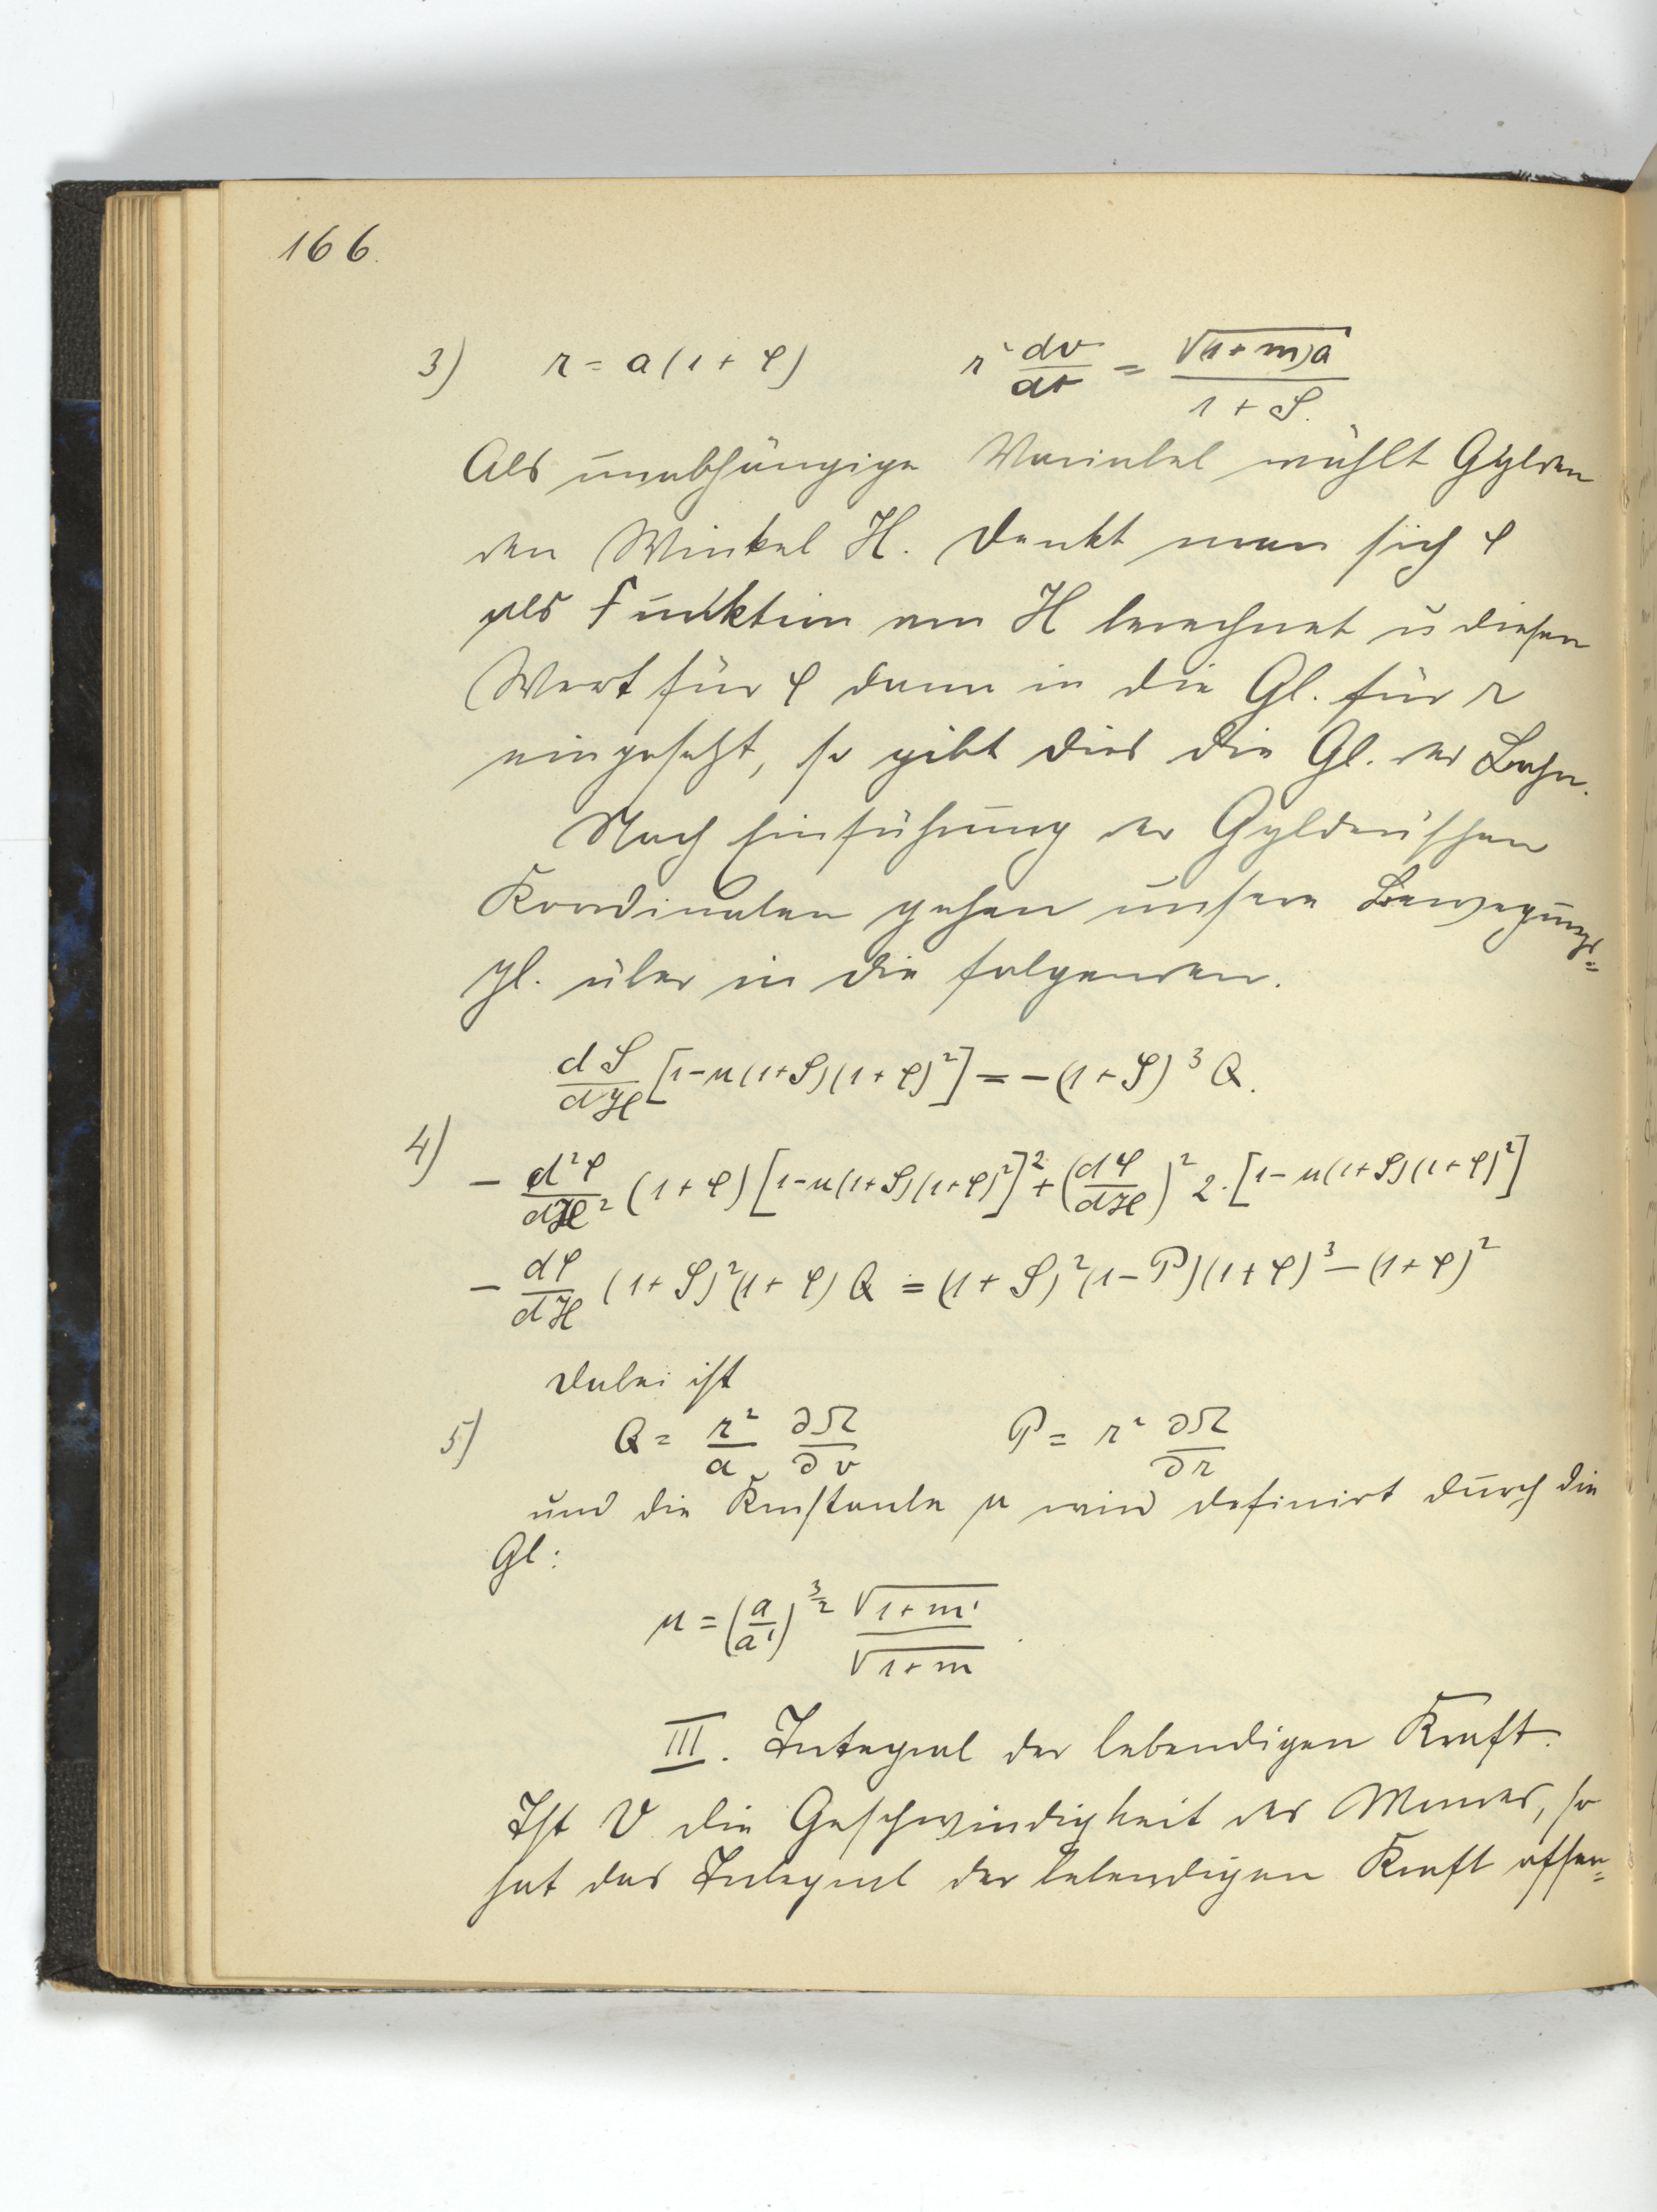 166.
3) r = a(1 + φ) r² dv/dt = √((1+m)a) / (1 + S).
Als unabhängige Variabel wählt Gylden
den Winkel H. Denkt man sich φ
als Funktion von H berechnet u diesen
Wert für φ dann in die Gl. für r
eingesetzt, so gibt dies die Gl. der Bahn.
Nach Einführung der Gylden'schen
Koordinaten gehen unsere Bewegungs=
gl. über in die folgenden.
dS/dH [1-μ(1+S)(1+φ)²] = -(1+S)³ Q.
4) - d²φ/dH² (1+φ) [1-μ(1+S)(1+φ)²]² + (dφ/dH)² 2·[1-μ(1+S)(1+φ)²]
- dφ/dH (1+S)²(1+φ) Q = (1+S)²(1-P)(1+φ)³ - (1+φ)²
Dabei ist
5) Q = r²/a ∂Ω/∂v P = r² ∂Ω/∂r
und die Konstante μ wird definirt durch die
Gl:
μ = (a/a')^(3/2) √(1+m') / √(1+m).
III. Integral der lebendigen Kraft.
Ist V die Geschwindigkeit des Mondes, so
hat das Integral der lebendigen Kraft offen=